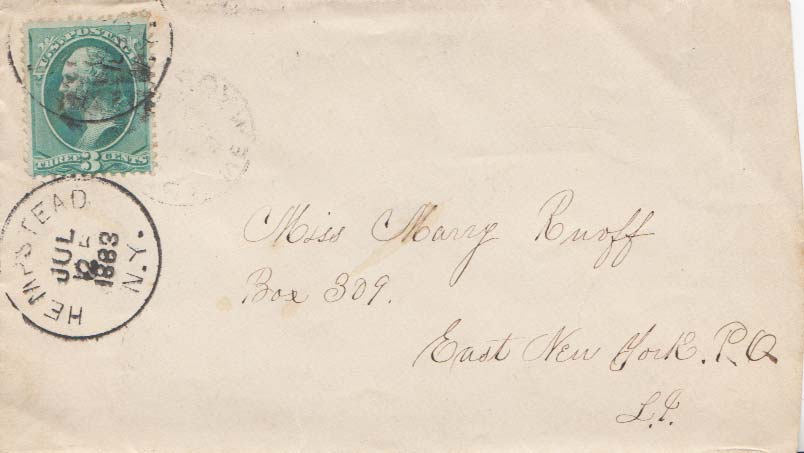 U.S. POSTAGE
THREE 3 CENTS
HEMPSTEAD
JUL
1883
N.Y.
Miss Mary Ruoff
Box 309.
East New York. P.O
L.I.